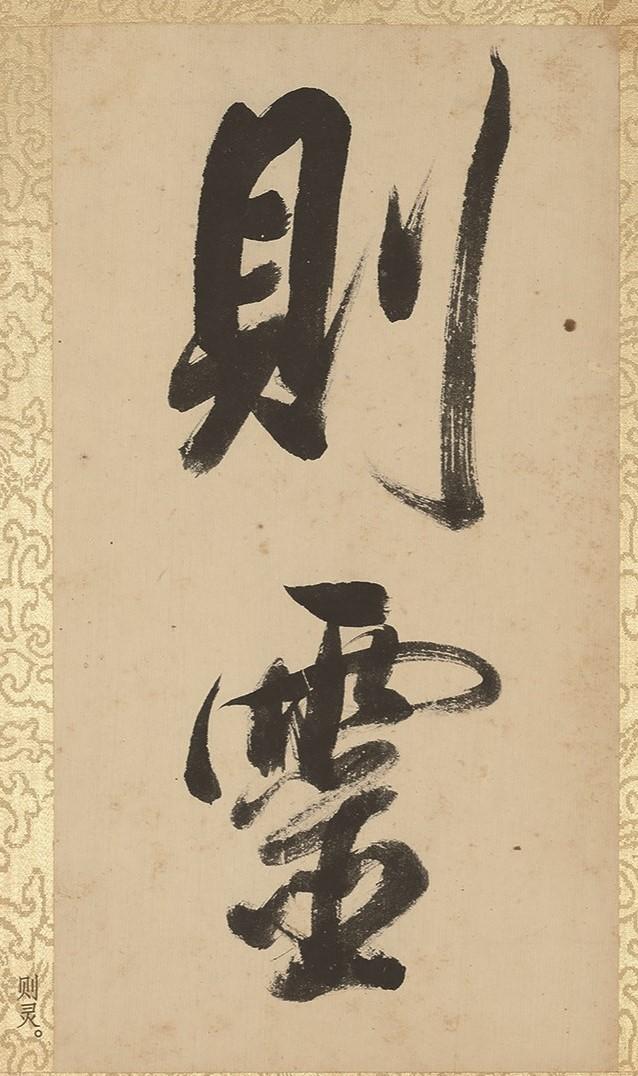 則靈
则灵。